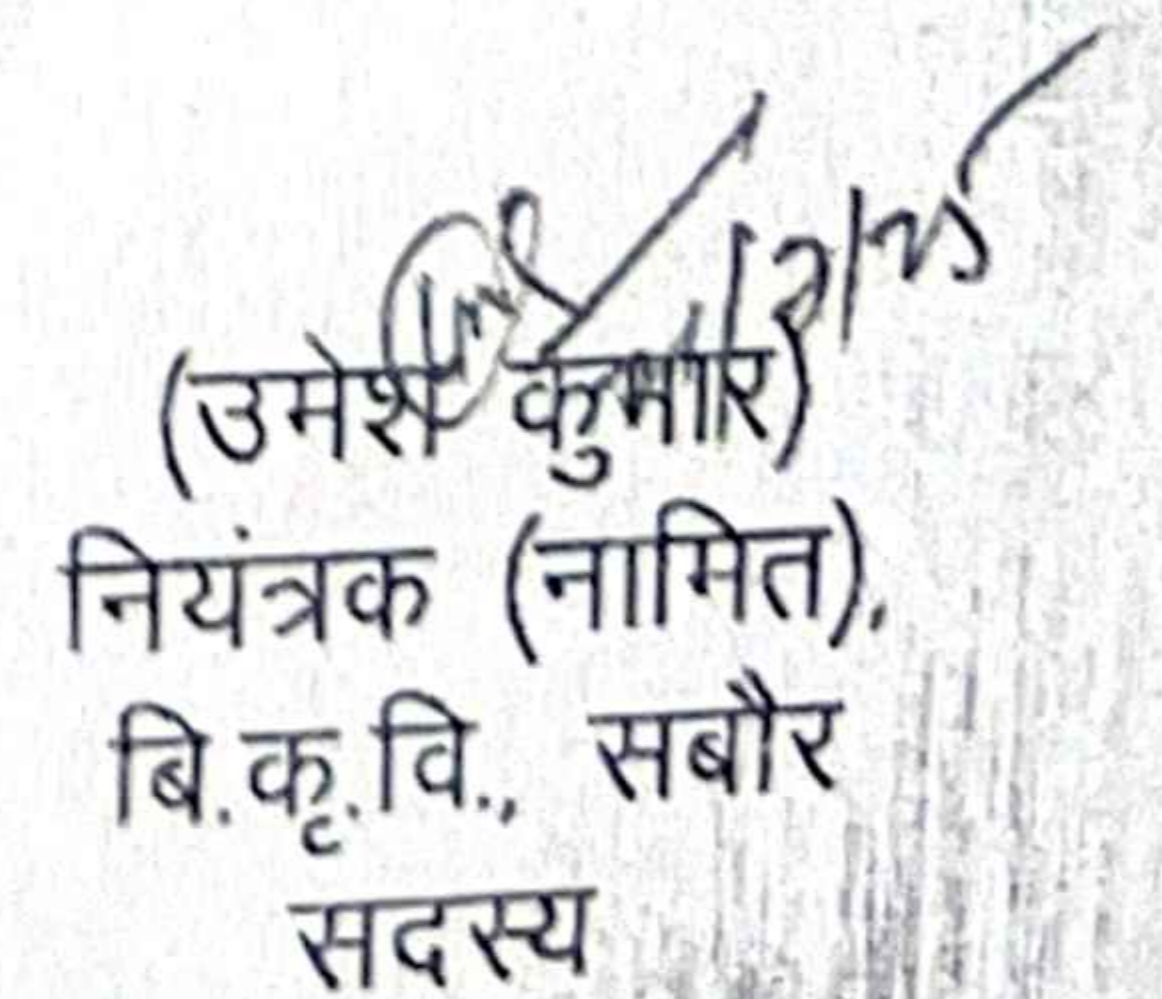 (उमेश कुमार)
नियंत्रक (नामित),
बि.कृ.वि., सबौर
सदस्य